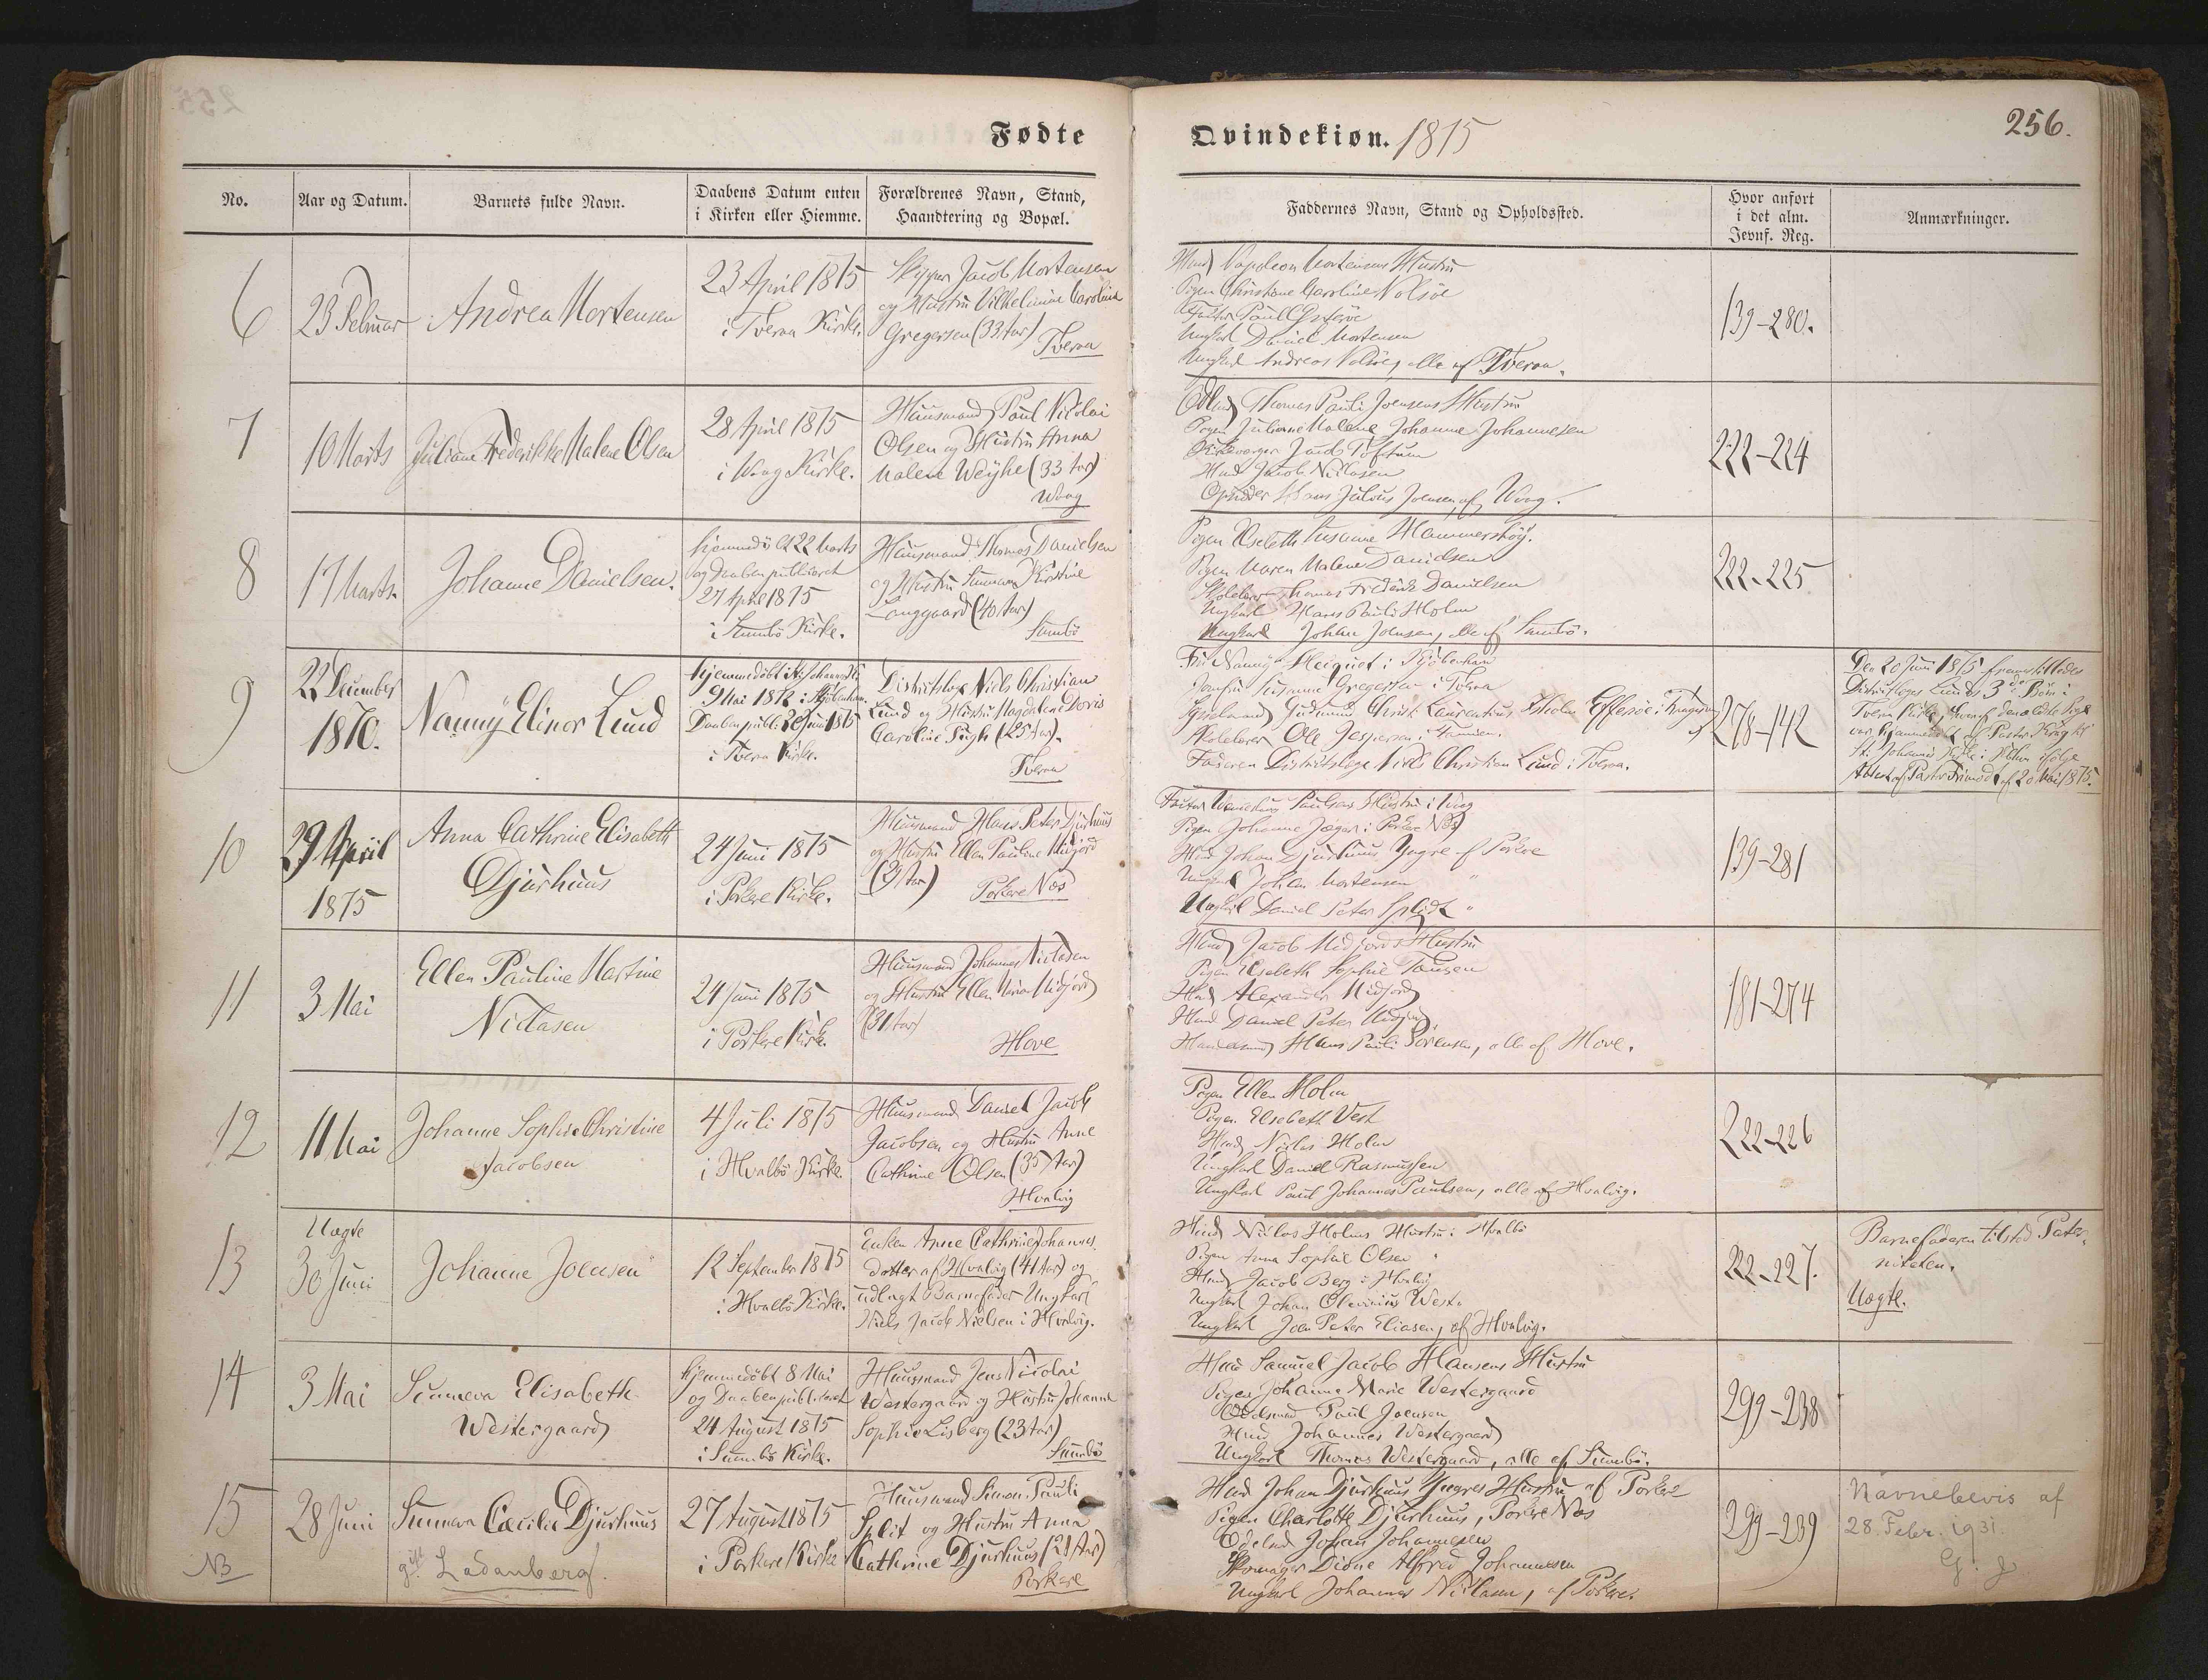 Fødte
Qvindekiøn. 1875
256.
No.
Aar og Datum.
Barnets fulde Navn.
Daabens Datum enten
i Kirken eller Hiemme.
Forældrenes Navn, Stand,
Haandtering og Bopæl.
Faddernes Navn, Stand og Opholdssted.
Hvor anført
i det alm.
Jevnf. Reg.
Anmærkninger.
6
23 Februar
Andrea Mortensen
23 April 1875
i Tveraa Kirke.
Skipper Jacob Mortensen
og Hustru Vilhelmine Caroline
Gregersen (33 Aar)
Tveraa
Napoleon Mortensens Hustru
Pigen Christiane Caroline Nolsøe
Poul
Ungkarl Daniel Mortensen
Ungkarl Andreas alle af Tveraa.
139-280.
7
10 Marts
Juliane Frederikke Malene Olsen
28 April 1875
i Waag Kirke.
Huusmand Poul Nicolai
Olsen og Hustru Anna
Malene Weyhe (33 Aar)
Waag
Thomas Pauli Joensens Hustru
Pigen Juliane Malene Johanne Johannesen
Kirkeværger Jacob Toftum
Jacob Niclasen
Hans Julius Joensen, af Waag.
222-224
8
17 Marts.
Johanne Danielsen.
hjemmedöbt 22 Marts
og Daaben publiceret
27 April 1875
i Sumbö Kirke.
Huusmand Thomas Danielsen
og Hustru Sunneva Kirstine
Langgaard (40 Aar)
Sumbö
Pigen Elsebeth Susanne Hammershöj.
Pigen Maren Malene Danielsen
Skolelærer Thomas Frederik Danielsen
Ungkarl Hans Pauli Holm
Ungkarl Johan Joensen, alle af Sumbö.
222-225
9
22 December
1870.
Nanny Elinor Lund
Hjemmedöbt
9 Mai 1872 i Kjöbenhavn.
Daaben publ. 20 Juni 1875
i Tveraa Kirke.
Districtslæge Niels Christian
Lund og Hustru Magdalene Doris
Caroline (25 Aar).
Tveraa
Fru Nanny i Kjöbenhavn
Jomfru Susanne Gregersen i Tveraa
Sysselmand Gudmund Christ. Laurentius Effersöe i
Skolelærer Ole Jespersen i Famien.
Faderen Districtslæge Niels Christian Lund i Tveraa.
278-142
Den 20 Juni 1875 fremstilledes
Districtslæge Lunds 3de Barn i
Tveraa Kirke, hvoraf den ældste Pige
var hjemmedöbt af Pastor Krag til
St. Johannis Kirke i Kbhvn ifölge
Attest af Pastor Frimodt af 20 Mai 1875.
10
29 April
1875
Anna Cathrine Elisabeth
Djurhuus
24 Juni 1875
i Porkere Kirke.
Huusmand Hans Peter Djurhuus
og Hustru Ellen Pauline Midjord
(31 Aar)
Porkere Næs
Poulsens Hustru i Waag
Pigen Johanne Jæger i Porkere Næs
Johan Djurhuus Yngre af Porkere
Ungkarl Johan Mortensen "
Ungkarl Daniel Peter Splidt "
139-281
11
3 Mai
Ellen Pauline Martine
Niclasen
24 Juni 1875
i Porkere Kirke.
Huusmand Johannes Niclasen
og Hustru Ellen Maria Midjord
(31 Aar)
Hove
Jacob Midjords Hustru
Pigen Elsebeth Sophie Tausen
Alexander Midjord
Daniel Peter Midjord
Hans Pauli Sörensen, alle af Hove.
181-274
12
11 Mai
Johanne Sophie Christine
Jacobsen
4 Juli 1875
i Hvalbö Kirke.
Huusmand Daniel Jacob
Jacobsen og Hustru Anne
Cathrine Olsen (35 Aar)
Hvalvig
Pigen Ellen Holm
Pigen Elsebeth Vest
Niclas Holm
Ungkarl Daniel Rasmussen
Ungkarl Poul Johannes Poulsen, alle af Hvalvig.
222-226
13
Uægte
30 Juni
Johanne Joensen
12 September 1875
i Hvalbö Kirke.
Enken Anne Cathrine Johannes-
datter af Hvalvig (41 Aar) og
udlagt Barnefader Ungkarl
Niels Jacob Nielsen i Hvalvig.
Niclas Holms Hustru i Hvalbö
Pigen Anna Sophie Olsen "
Jacob Berg i Hvalvig
Ungkarl Johan Olevinius West.
Ungkarl Joen Peter Eliasen, af Hvalvig.
222-227.
Barnefaderen tilstod Pater-
niteten.
Uægte.
14
3 Mai
Sunneva Elisabeth
Westergaard
Hjemmedöbt 8 Mai
og Daaben publiceret
24 August 1875
i Sumbö Kirke.
Huusmand Jens Nicolai
Westergaard og Hustru Johanne
Sophie Lisberg (23 Aar)
Sumbö
Samuel Jacob Hansens Hustru
Pigen Johanne Marie Westergaard
Odelsmd Poul Joensen
Johannes Westergaard
Ungkarl Thomas Westergaard, alle af Sumbö.
299-238
15
NB
28 Juni
Sunneva Cæcilie Djurhuus
gift Ladanberg.
27 August 1875
i Porkere Kirke
Huusmand Simon Pauli
Split og Hustru Anna
Cathrine Djurhuus (21 Aar)
Porkere
Johan Djurhuus Yngres Hustru af Porkere
Pigen Charlotte Djurhuus, Porkere Næs
Odelsmd Johan Johannesen
Skomager Dione Alfred Johannesen
Ungkarl Johannes Niclasen, af Porkere.
299-239
Navnebevis af
28. Febr. 1931.